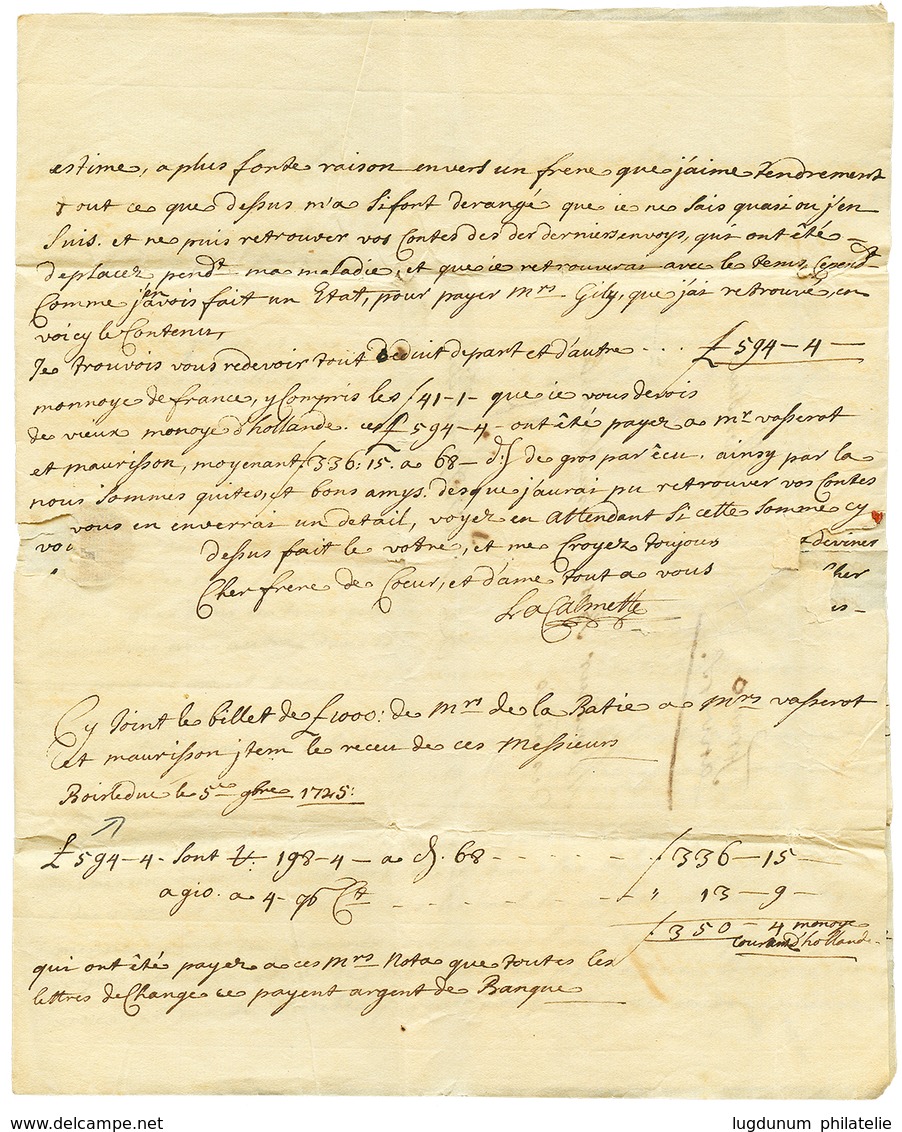 estime, a plus forte raison envers un frere que j'aime tendrement
tout ce que dessus m'a si fort derangé que ie ne sais quasi ou j'en
suis. et ne puis retrouver vos Contes des der derniers envoys, qui ont été
deplacez pendt. ma maladie, et que ie retrouverai avec le tems, Cependt.
Comme j'en avois fait un Etat, pour payer Mrs Gily, que j'ai retrouvé, en
voicy le Contenu,
Je trouvois vous redevoir tout deduit de part et d'autre ... £ 594-4-
monnoye de france, y Compris les ƒ 41-1- que ie vous devois
de vieux monoye d'hollande. ces £ 594-4- ont été payez a Mr vasserot
et maurisson, moyenant ƒ 336:15. a 68- de gros par êcu. ainsy par la
nous sommes quites, et bons amys. des que j'aurai pu retrouver vos Contes
vous en enverrai un detail, voyez en attendant si cette somme cy
dessus fait le votre, et me Croyez toujous
Cher frere de Coeur, et d'ame tout a vous
La Calmette
Cy Joint le billet de £ 1000: de Mr de la Batie a Mrs vasserot
et maurisson jtem le receu de ces Messieurs
Boisleduc le 5e 9bre 1725:
£ 594-4- sont 198-4- a 68 - - - - - ƒ 336-15-
agio. a 4- - - - - - " 13-9-
ƒ 350-4 monoye
courand d'hollande.
qui ont été payez a ces Mrs Nota que toutes les
lettres de Change ce payent argent de Banque
lugdunum philatelie
www.delcampe.net